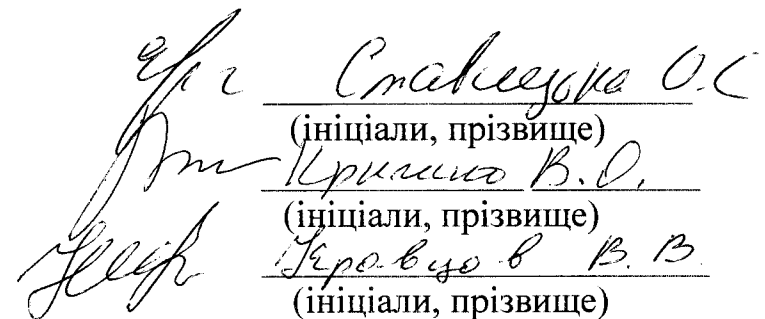 Ставицька О.С
(ініціали, прізвище)
В.О.
(ініціали, прізвище)
Кравцов В. В.
(ініціали, прізвище)